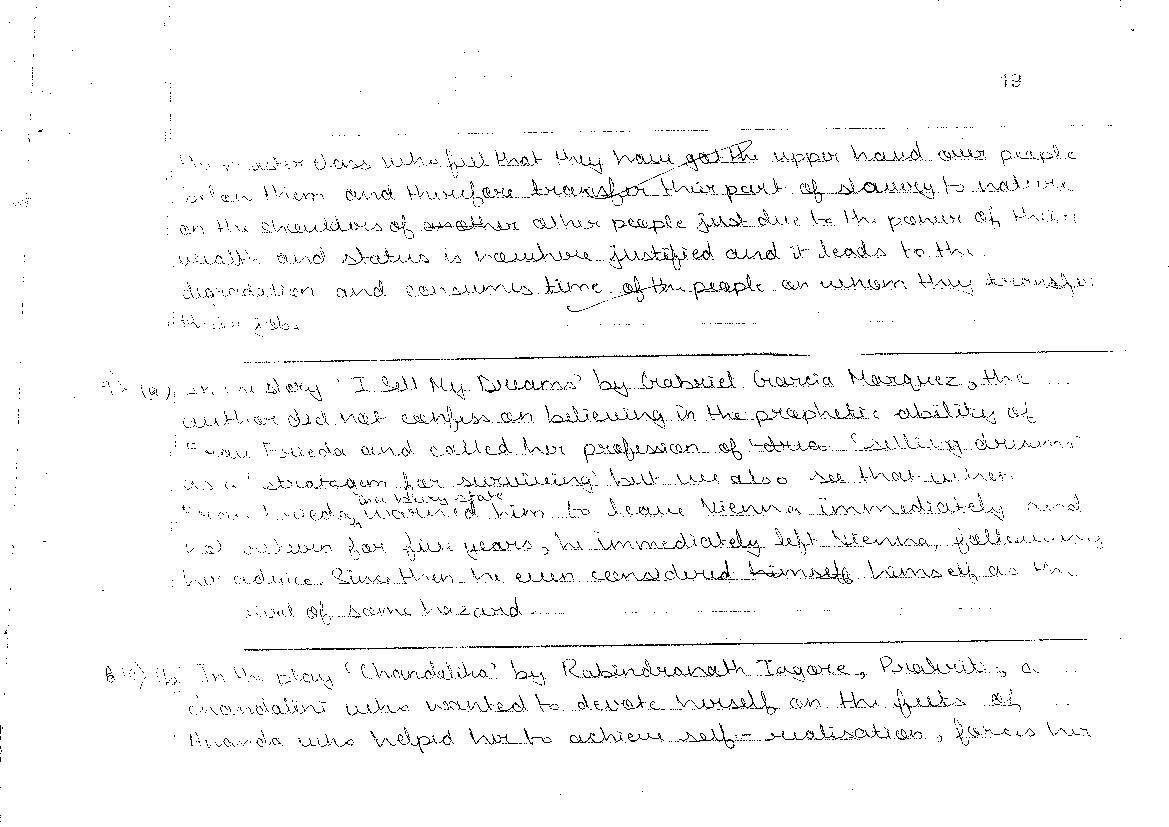 19
master class who feel that they have got the upper hand over people
on them and therefore transfer their part of slavery to nature
on the shoulders of another other people just due to the power of their
wealth and status is nowhere justified and it leads to the
degradation and consumes time of the people on whom they transfer
their job.
(a) In the story 'I Sell My Dreams' by Gabriel Garcia Marquez, the
author did not confess on believing in the prophetic ability of
Frau Frieda and called her profession of 'selling dreams'
as a 'stratagem for surviving' but we also see that when
Frau Frieda warned him to leave Vienna immediately and
not return for five years, he immediately left Vienna, following
her advice. Since then he even considered himself himself as the
of some hazard
(b) In the play 'Chandalika' by Rabindranath Tagore, Prakriti, a
chandalini who wanted to devote herself on the feets of
Ananda who helped her to achieve self-realisation, forces her